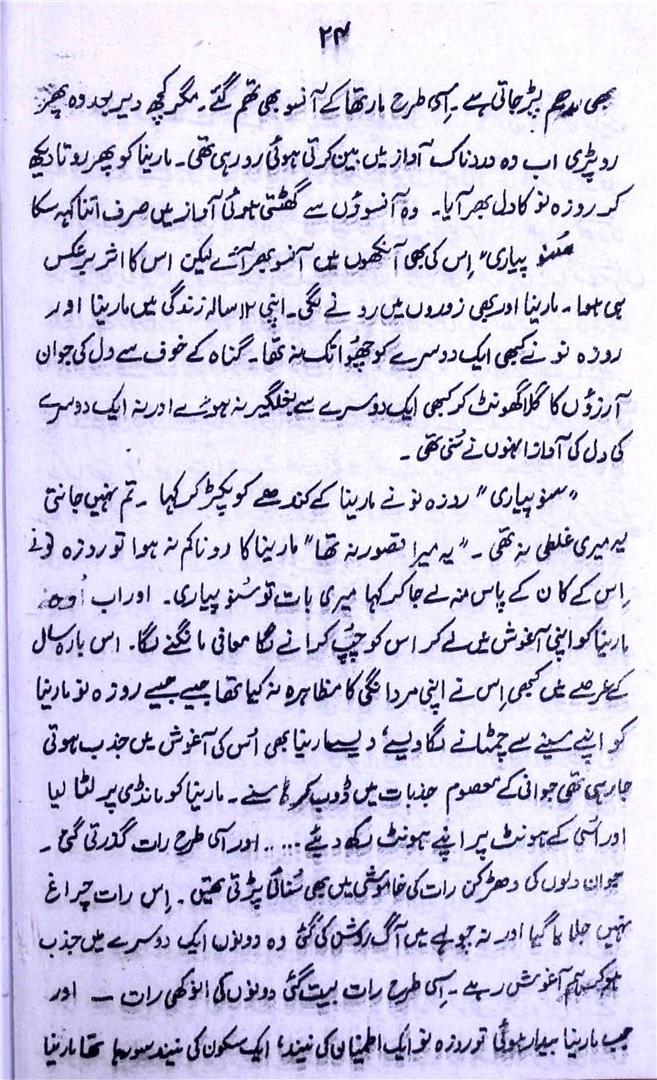 ۲۴
بھی مدھم پڑ جاتی ہے۔ اِسی طرح مارتھا کے آنسو بھی تھم گئے۔ مگر کچھ دیر بعد وہ پھر
رو پڑی اب وہ دردناک آواز میں بین کرتی ہوئی رو رہی تھی۔ مارینا کو پھر روتا دیکھ
کر روزہ نو کا دل بھر آیا۔ وہ آنسوؤں سے گھٹتی ہوئی آواز میں صرف اتنا کہہ سکا
سُنو پیاری" اِس کی بھی آنکھوں میں آنسو بھر آئے لیکن اس کا اثر برعکس
ہی ہوا۔ مارینا اور بھی زوروں میں رونے لگی۔ اپنی ۱۲ سالہ زندگی میں مارینا اور
روزہ نو نے کبھی ایک دوسرے کو چھُوا تک نہ تھا۔ گناہ کے خوف سے دل کی جوان
آرزؤں کا گلا گھونٹ کر کبھی ایک دوسرے سے بغلگیر نہ ہوئے اور نہ ایک دوسرے
کی دل کی آواز انہوں نے سُنی تھی۔
"سنو پیاری" روزہ نو نے مارینا کے کندھے کو پکڑ کر کہا۔ تم نہیں جانتی
یہ میری غلطی نہ تھی۔ "یہ میرا قصور نہ تھا" مارینا کا رونا کم نہ ہوا تو روزہ نو نے
اِس کے کان کے پاس منہ لے جا کر کہا میری بات تو سُنو پیاری۔ اور اب وہ
مارینا کو اپنی آغوش میں لے کر اس کو چُپ کرانے لگا معافی مانگنے لگا۔ اس بارہ سال
کے عرصے میں کبھی اِس نے اپنی مردانگی کا مظاہرہ نہ کیا تھا جیسے جیسے روزہ نو مارینا
کو اپنے سینے سے چمٹانے لگا ویسے ویسے مارینا بھی اُس کی آغوش میں جذب ہوتی
جا رہی تھی جوانی کے معصوم جذبات میں ڈوب کر اسنے۔ مارینا کو مانڈی پر لٹا لیا
اور اُسی کے ہونٹ پر اپنے ہونٹ رکھ دیئے ..... اور اسی طرح رات گذرتی گئی۔
جوان دلوں کی دھڑکن رات کی خاموشی میں بھی سُنائی پڑتی تھیں۔ اِس رات چراغ
نہیں جلایا گیا اور نہ چولہے میں آگ روشن کی گئی وہ دونوں ایک دوسرے میں جذب
ہو کر ہم آغوش رہے۔ اِسی طرح رات بیت گئی دونوں کی انوکھی رات — اور
جب مارینا بیدار ہوئی تو روزہ نو ایک اطمینان کی نیند، ایک سکون کی نیند سو رہا تھا مارینا